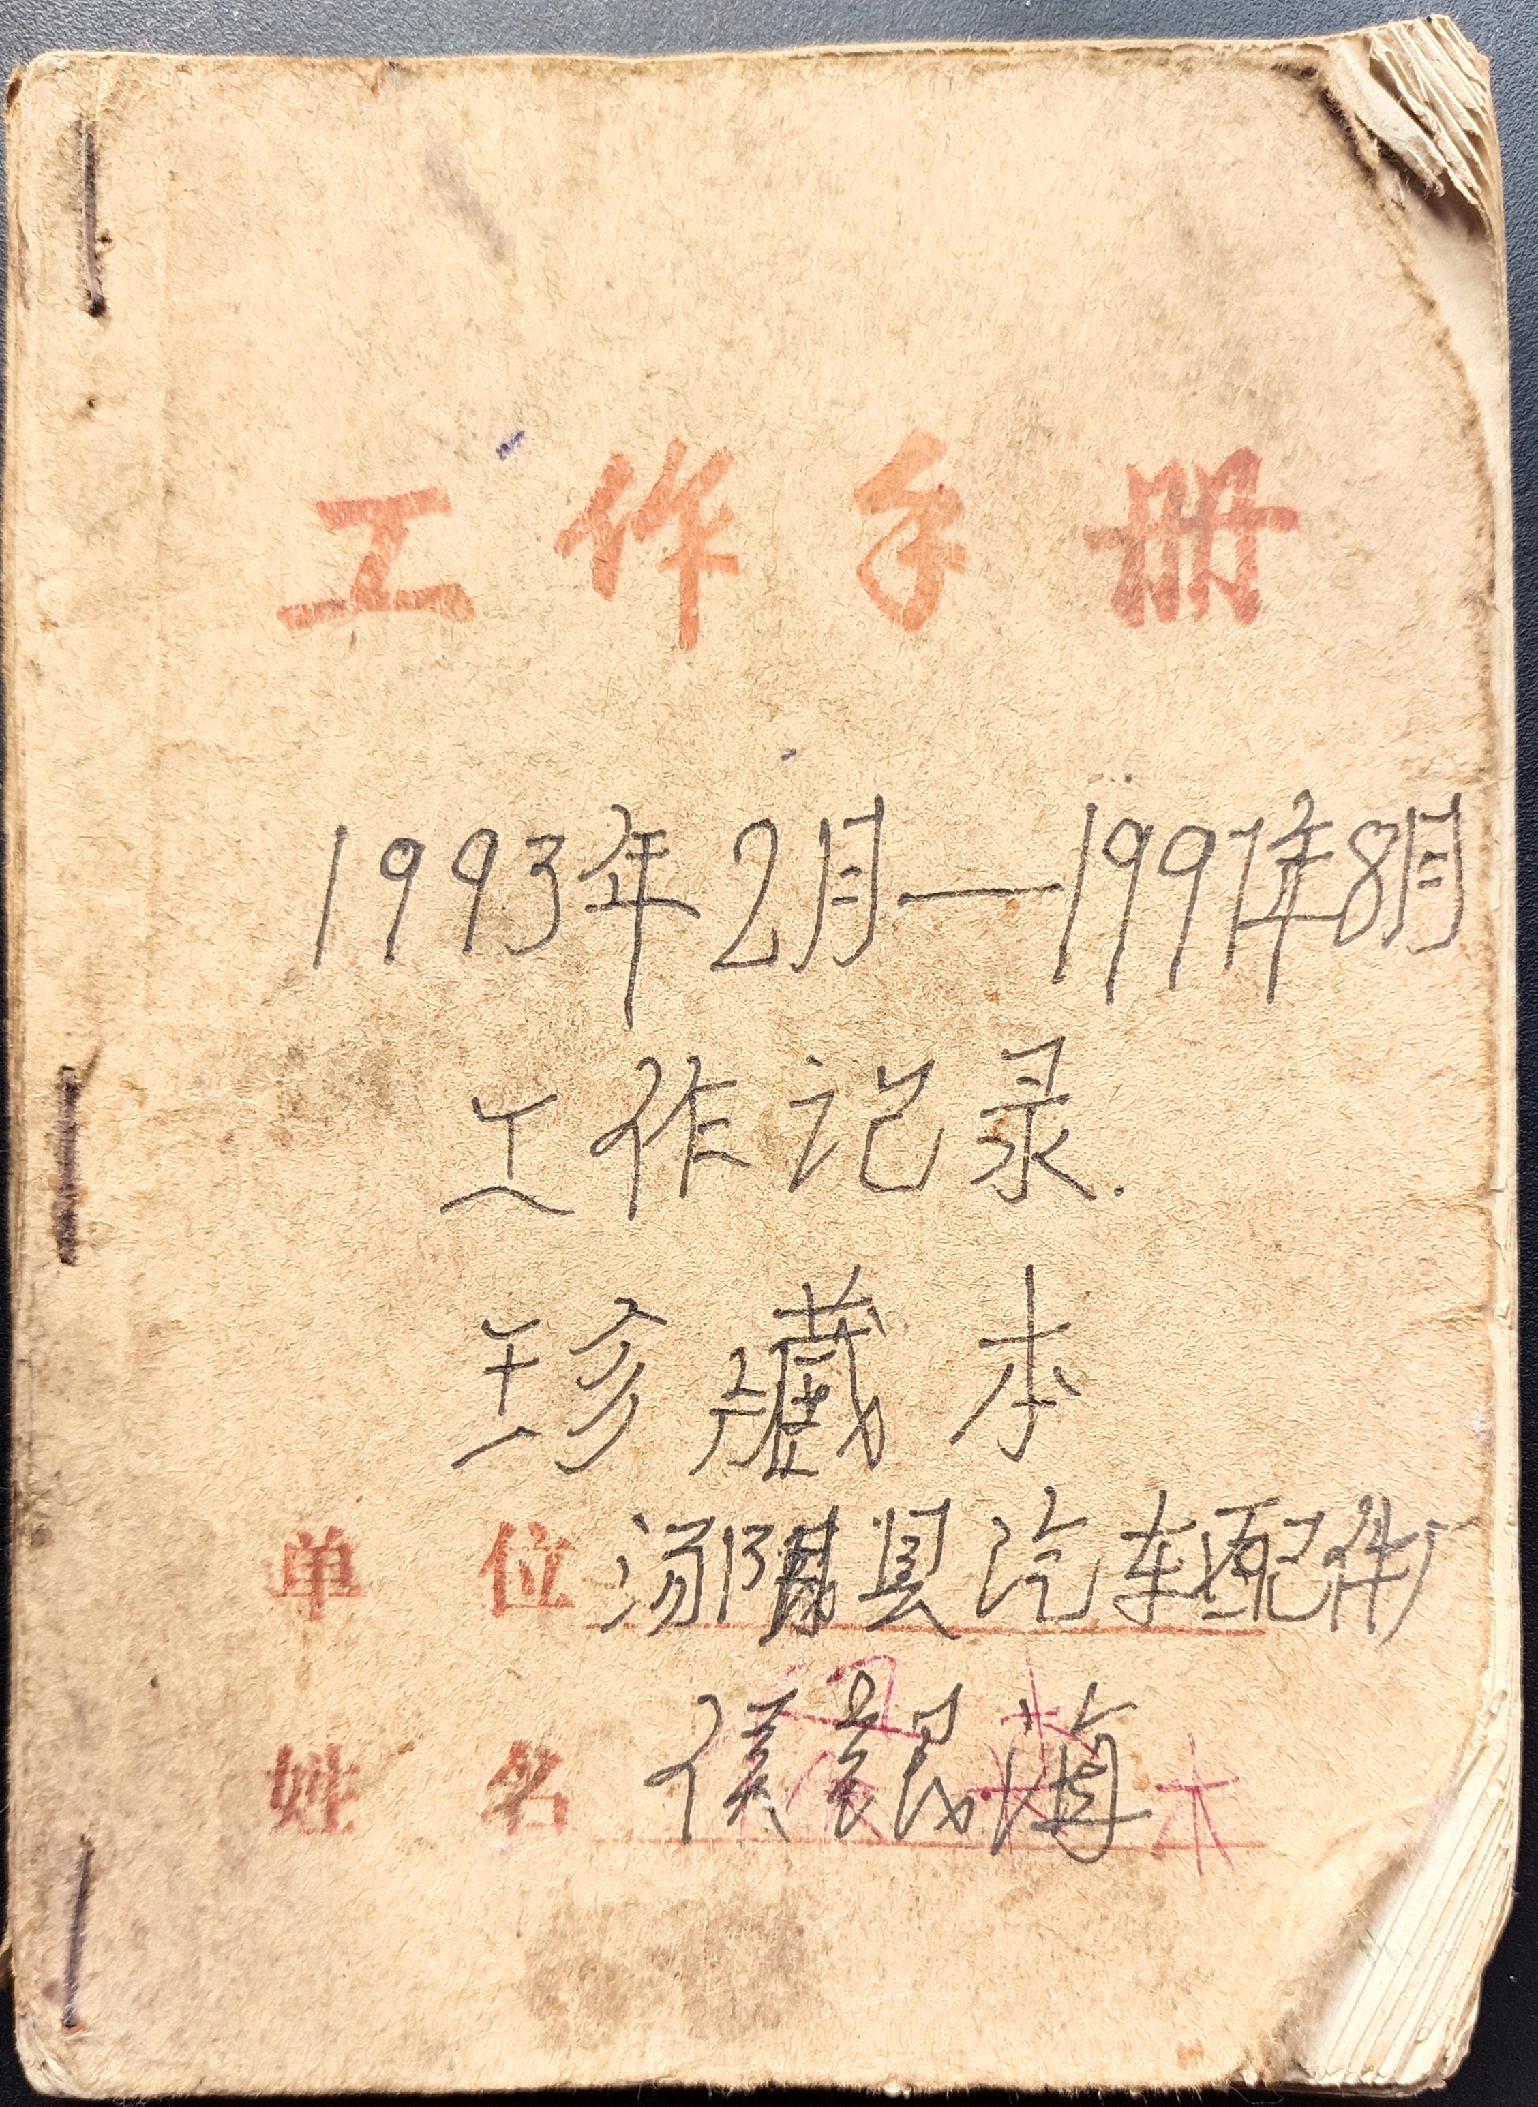 工作手册
1993年2月—1997年8月
工作记录.
珍藏本
单 位 汤阴县汽车配件厂
姓 名 侯